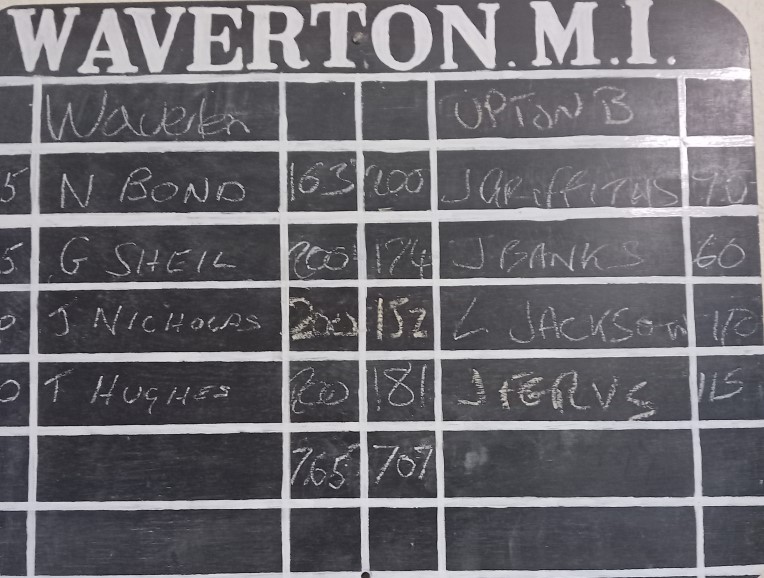 WAVERTON. M.I.
Waverton UPTON B
5 N BOND 163 200 J GRIFFITHS 90
5 G SHEIL 200 174 J BANKS 60
0 J NICHOLAS 200 152 L JACKSON 110
0 T HUGHES 200 181 115
765 707